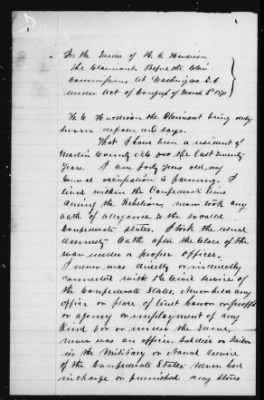 In the Matter of H. C. Hardison
The Claimant Before the Claim
Commissions At Washington D.C
under Act of Congress of March 3rd 1871
H. C. Hardison the Claimant being duly
sworn deposes and says.
That I have been a resident of
County for the last Twenty
Years. I am forty Years old, my
usual occupation is farming. I
lived within the Confederate lines
during the Rebellion, never took any
oath of Allegiance to the so called
Confederate States. I took the usual
Amnesty Oath after the Close of the
war under a proper officer.
I never was directly or indirectly
connected with the Civil service of
the Confederate States. Never held any
office or place of trust honor or profit
or agency or employment of any
Kind for or under the same,
never was an officer, Soldier or Sailor
in the Military or Naval service
of the Confederate States never had
in charge or furnished any Stores